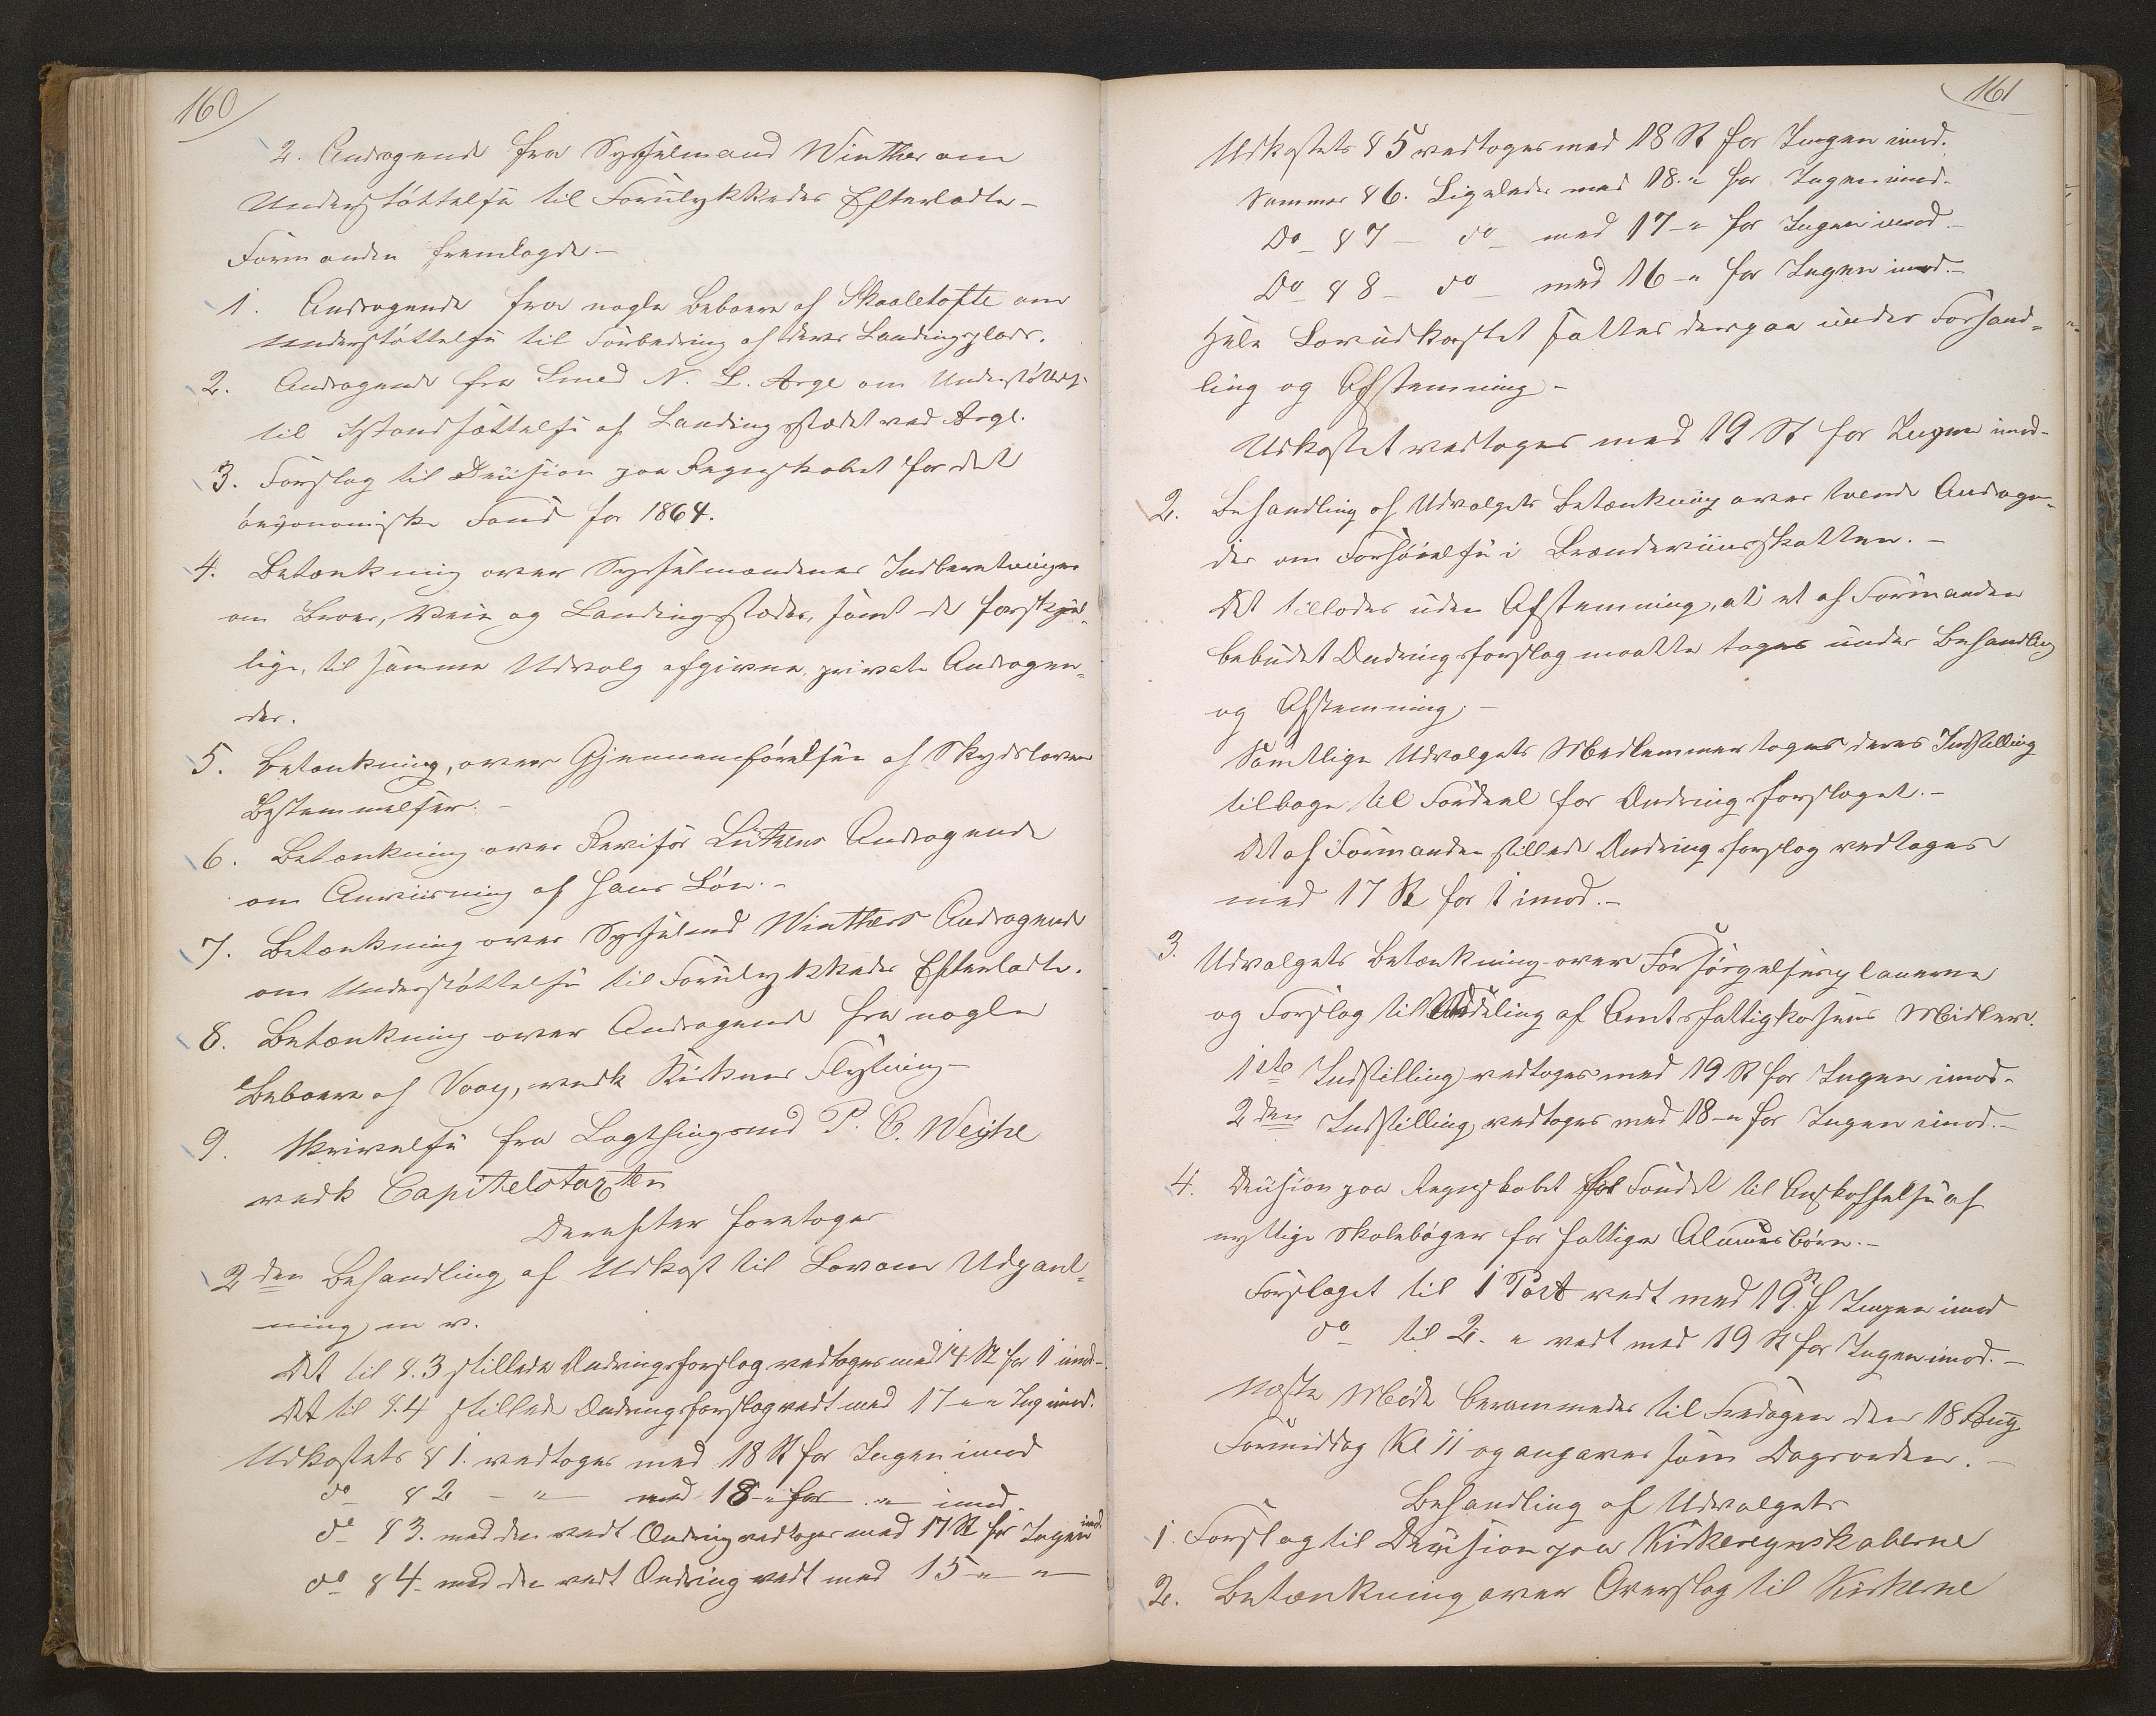 160
2. Andragende fra Sysselmand Winther om
Understøttelse til Forulykkedes Efterladte –
Formanden fremlagde –
1. Andragende fra nogle Beboere af Skaaletofte om
Understøttelse til Forbedring af deres Landingsplads.
2. Andragende fra Smed N. L. Arge om Understøttels.
til Istandsættelse af Landingsstedet ved Arge.
3. Forslag til Decision paa Regnskabet for det
færøernes Fond for 1864.
4. Betænkning over Sysselmændenes Indberetninger
om Broer, Veie og Landingssteder, samt de forskjel-
lige, til samme Udvalg afgivne, private Andragen-
der.
5. Betænkning, over Gjennemførelsen af Skydslovens
Bestemmelser. –
6. Betænkning over Revisor Lützens Andragende
om Anviisning af hans Løn. –
7. Betænkning over Sysselmd Winthers Andragende
om Understøttelse til Forulykkedes Efterladte.
8. Betænkning over Andragende fra nogle
Beboere af Vaag, vedk Kirkens Flytning –
9. Skrivelse fra Lagthingsmd P. C. Weyhe
vedk Capitelstaxten
Derefter foretoges
2den Behandling af Udkast til Lov om Udpant-
ning m v.
Det til §.3 stillede Ændringsforslag vedtoges med 14 St for 1 imod –
Det til §.4 stillede Ændringsforslag vedt med 17 – " Ing imod.
Udkastets § 1. vedtoges med 18 St for Ingen imod
do § 2 – " – med 18 – " for – " – imod.
do § 3. med den vedt Ændring vedtoges med 17 St for Ingen imod
do § 4 – med den vedt Ændring vedt med 15 – " – "
161
Udkastets § 5 vedtoges med 18 St for Ingen imod.
Sammes § 6. Ligeledes med 18. " for Ingen imod.
Do – § 7 – do – med 17 – " for Ingen imod –
Do – § 8 – do – med 16 – " for Ingen imod –
Hele Lovudkastet sattes derpaa under Forhand-
ling og Afstemning –
Udkastet vedtoges med 19 St for Ingen imod –
2. Behandling af Udvalgets Betænkning over tvende Andragen-
der om Forhøielse i Brændeviinsskatten. –
Det tillodes uden Afstemning, at et af Formanden
bebudet Ændringsforslag maatte tages under Behandling
og Afstemning. –
Samtlige Udvalgets Medlemmer toges deres Indstilling
tilbage til Fordeel for Ændringsforslaget. –
Det af Formanden stillede Ændringsforslag vedtoges
med 17 St for 1 imod. –
3. Udvalgets Betænkning over Forsørgelsesplanerne
og Forslag til Uddeling af Amtsfattigkassens Midler.
1ste Indstilling vedtoges med 19 St for Ingen imod –
2den Indstilling vedtoges med 18 – " for Ingen imod. –
4. Decision paa Regnskabet for Fondet til Anskaffelse af
nyttige Skolebøger for fattige Almuesbørn. –
Forslaget til 1 Post vedt med 19 St f Ingen imod
do – til 2. " vedt med 19 St for Ingen imod. –
Næste Møde berammedes til Fredagen den 18 Aug
Formiddag Kl 11 og angaves som Dagsorden. –
Behandling af Udvalgets
1. Forslag til Decision paa Kirkeregnskaberne
2. Betænkning over Overslag til Kirkerne